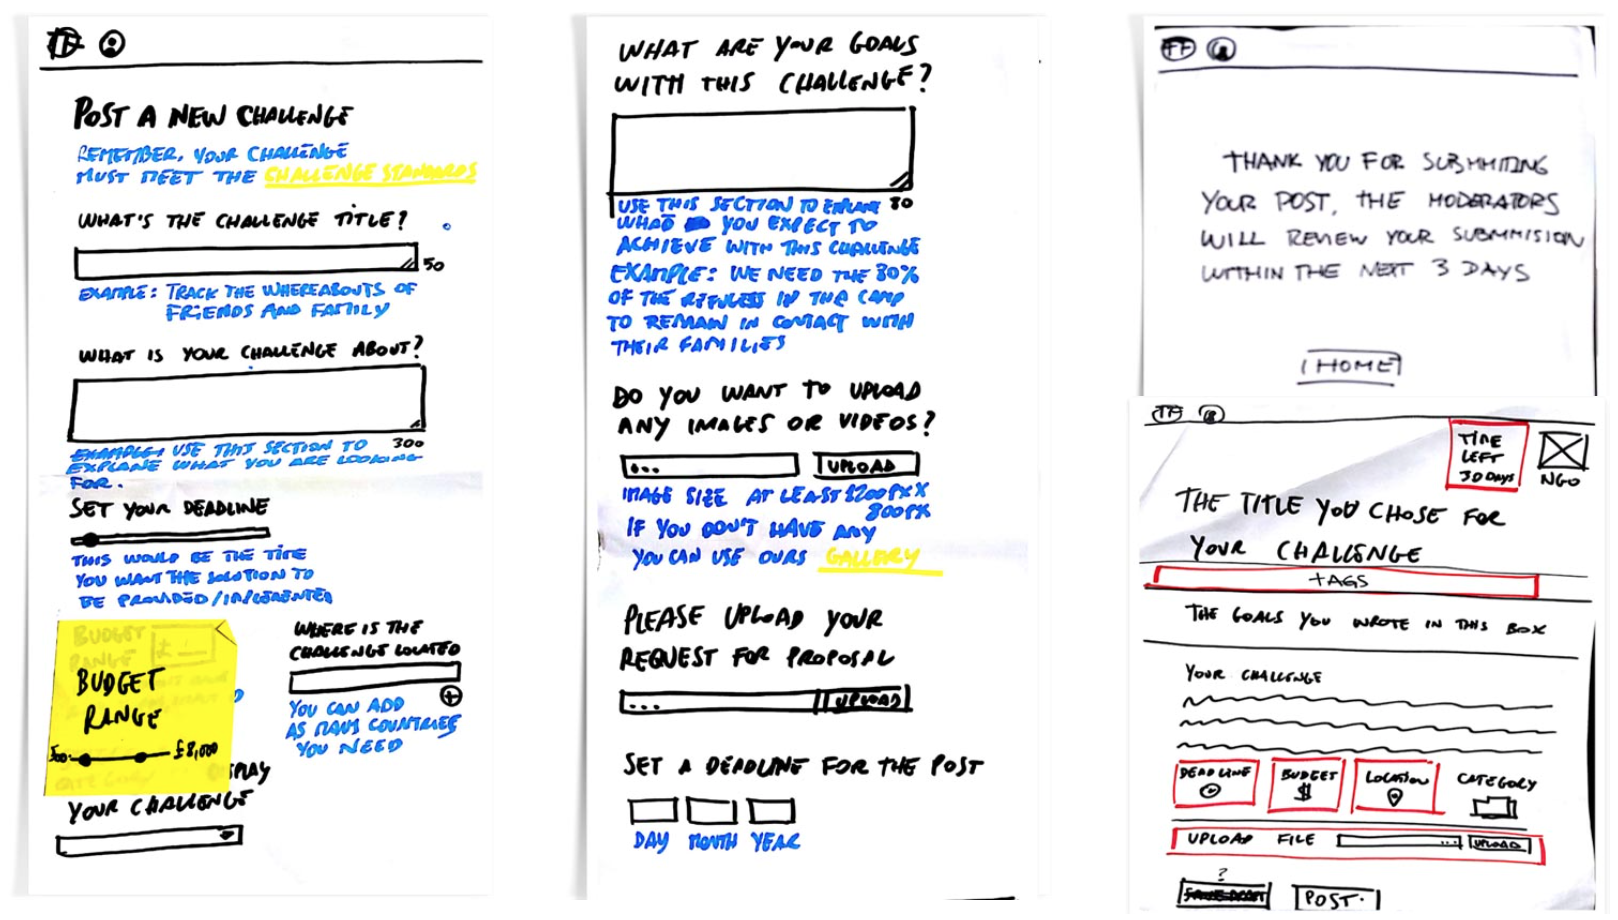 FF
POST A NEW CHALLENGE
REMEMBER, YOUR CHALLENGE
MUST MEET THE CHALLENGE STANDARDS
WHAT'S THE CHALLENGE TITLE?
50
EXAMPLE: TRACK THE WHEREABOUTS OF
FRIENDS AND FAMILY
WHAT IS YOUR CHALLENGE ABOUT?
300
EXAMPLE: USE THIS SECTION TO
EXPLANE WHAT YOU ARE LOOKING
FOR.
SET YOUR DEADLINE
THIS WOULD BE THE TIME
YOU WANT THE SOLUTION TO
BE PROVIDED/IMPLEMENTED
BUDGET
RANGE
500 £8,000
WHERE IS THE
CHALLENGE LOCATED
YOU CAN ADD
AS MANY COUNTRIES
YOU NEED
YOUR CHALLENGE
WHAT ARE YOUR GOALS
WITH THIS CHALLENGE?
USE THIS SECTION TO EXPLANE 80
WHAT YOU EXPECT TO
ACHIEVE WITH THIS CHALLENGE
EXAMPLE: WE NEED THE 80%
OF THE REFUGEES IN THE CAMP
TO REMAIN IN CONTACT WITH
THEIR FAMILIES
DO YOU WANT TO UPLOAD
ANY IMAGES OR VIDEOS?
... UPLOAD
IMAGE SIZE AT LEAST 1200PX X
800PX
IF YOU DON'T HAVE ANY
YOU CAN USE OURS GALLERY
PLEASE UPLOAD YOUR
REQUEST FOR PROPOSAL
... UPLOAD
SET A DEADLINE FOR THE POST
DAY MONTH YEAR
FF
THANK YOU FOR SUBMMITING
YOUR POST, THE MODERATORS
WILL REVIEW YOUR SUBMMISION
WITHIN THE NEXT 3 DAYS
HOME
FF
TIME
LEFT
30 DAYS
NGO
THE TITLE YOU CHOSE FOR
YOUR CHALLENGE
TAGS
THE GOALS YOU WROTE IN THIS BOX
YOUR CHALLENGE
DEADLINE BUDGET LOCATION CATEGORY
$
UPLOAD FILE ... UPLOAD
?
SAVE DRAFT POST.